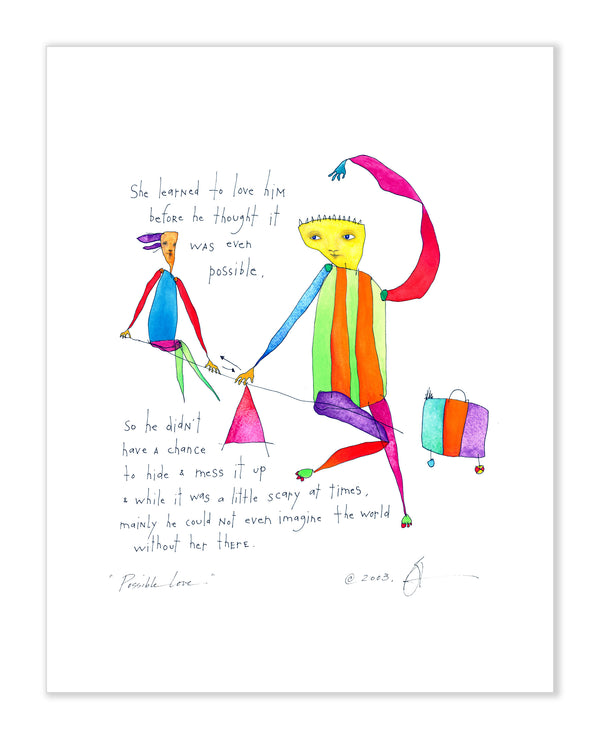 She learned to love him
before he thought it
was even
possible,
so he didn't
have a chance
to hide & mess it up
& while it was a little scary at times,
mainly he could not even imagine the world
without her there.
"Possible Love."
@ 2003.